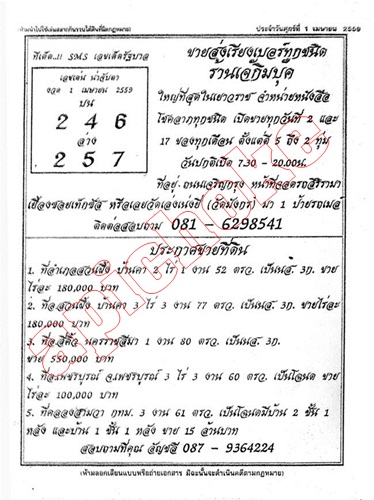 (ห้ามนำไปใช้เล่นสลากกินรวบไม่ดีผิดกฎหมาย)
ประจำวันศุกร์ที่ 1 เมษายน 2559
ทีเด็ด..!! SMS เลขเด็ดรัฐบาล
เลขเด่น นำสัปดา
งวด 1 เมษายน 2559
บน
2 4 6
ล่าง
2 5 7
ขายส่งเรียงเบอร์ทุกชนิด
ร้านเจ๊กิมบุค
ใหญ่ที่สุดในเยาวราช จำหน่ายหนังสือ
โชคลาภทุกชนิด เปิดขายทุกวันที่ 2 และ
17 ของทุกเดือน ตั้งแต่ตี 5 ถึง 2 ทุ่ม
วันปกติเปิด 7.30 - 20.00น.
ที่อยู่. ถนนเจริญกรุง หน้าที่จอดรถสิริรามา
เยื้องซอยเท็กซัส หรือเลยวัดเล่งเน่ยยี่ (วัดมังกร) มา 1 ป้ายรถเมล์
ติดต่อสอบถาม 081 - 6298541
ประกาศขายที่ดิน
1. ที่อำเภอสวนผึ้ง บ้านคา 2 ไร่ 1 งาน 52 ตรว. เป็นนส. 3ก. ขาย
ไร่ละ 180,000 บาท
2. ที่อ.สวนผึ้ง บ้านคา 3 ไร่ 3 งาน 77 ตรว. เป็นนส. 3ก. ขายไร่ละ
180,000 บาท
3. ที่อ.สีคิ้ว นครราชสีมา 1 งาน 80 ตรว. เป็นนส. 3ก.
ขาย 550,000 บาท
4. ที่อ.เพชรบูรณ์ จ.เพชรบูรณ์ 3 ไร่ 3 งาน 60 ตรว. เป็นโฉนด ขาย
ไร่ละ 100,000 บาท
5. ที่คลองสามวา กทม. 3 งาน 61 ตรว. เป็นโฉนดมีบ้าน 2 ชั้น 1
หลัง และบ้าน 1 ชั้น 1 หลัง ขาย 15 ล้านบาท
สอบถามที่คุณ อัญชลี 087 - 9364224
(ห้ามลอกเลียนแบบหรือถ่ายเอกสาร มิฉะนั้นจะดำเนินคดีตามกฎหมาย)